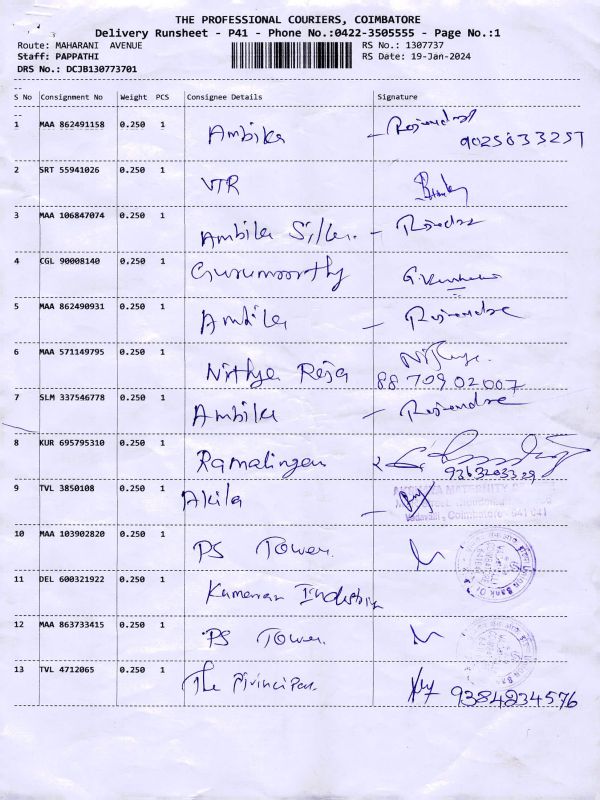 THE PROFESSIONAL COURIERS, COIMBATORE
Delivery Runsheet - P41 - Phone No.:0422-3505555 - Page No.:1
Route: MAHARANI AVENUE RS No.: 1307737
Staff: PAPPATHI RS Date: 19-Jan-2024
DRS No.: DCJB130773701
S No Consignment No Weight PCS Consignee Details Signature
1 MAA 862491158 0.250 1 Ambika
9025833257
2 SRT 55941026 0.250 1 VTR
3 MAA 106847074 0.250 1 Ambika
4 CGL 90008140 0.250 1 Gurumoorthy
5 MAA 862490931 0.250 1 Ambika
6 MAA 571149795 0.250 1 Nithya Raja
88 709 02 007
7 SLM 337546778 0.250 1 Ambika
8 KUR 695795310 0.250 1 Ramalingam
9363203329
9 TVL 3850108 0.250 1 Akila
MATERNITY
Vadavalli, Coimbatore - 641 041
10 MAA 103902820 0.250 1 PS Tower.
11 DEL 600321922 0.250 1 Kameran Industry
12 MAA 863733415 0.250 1 PS Tower.
13 TVL 4712065 0.250 1 The Principal.
9384234576